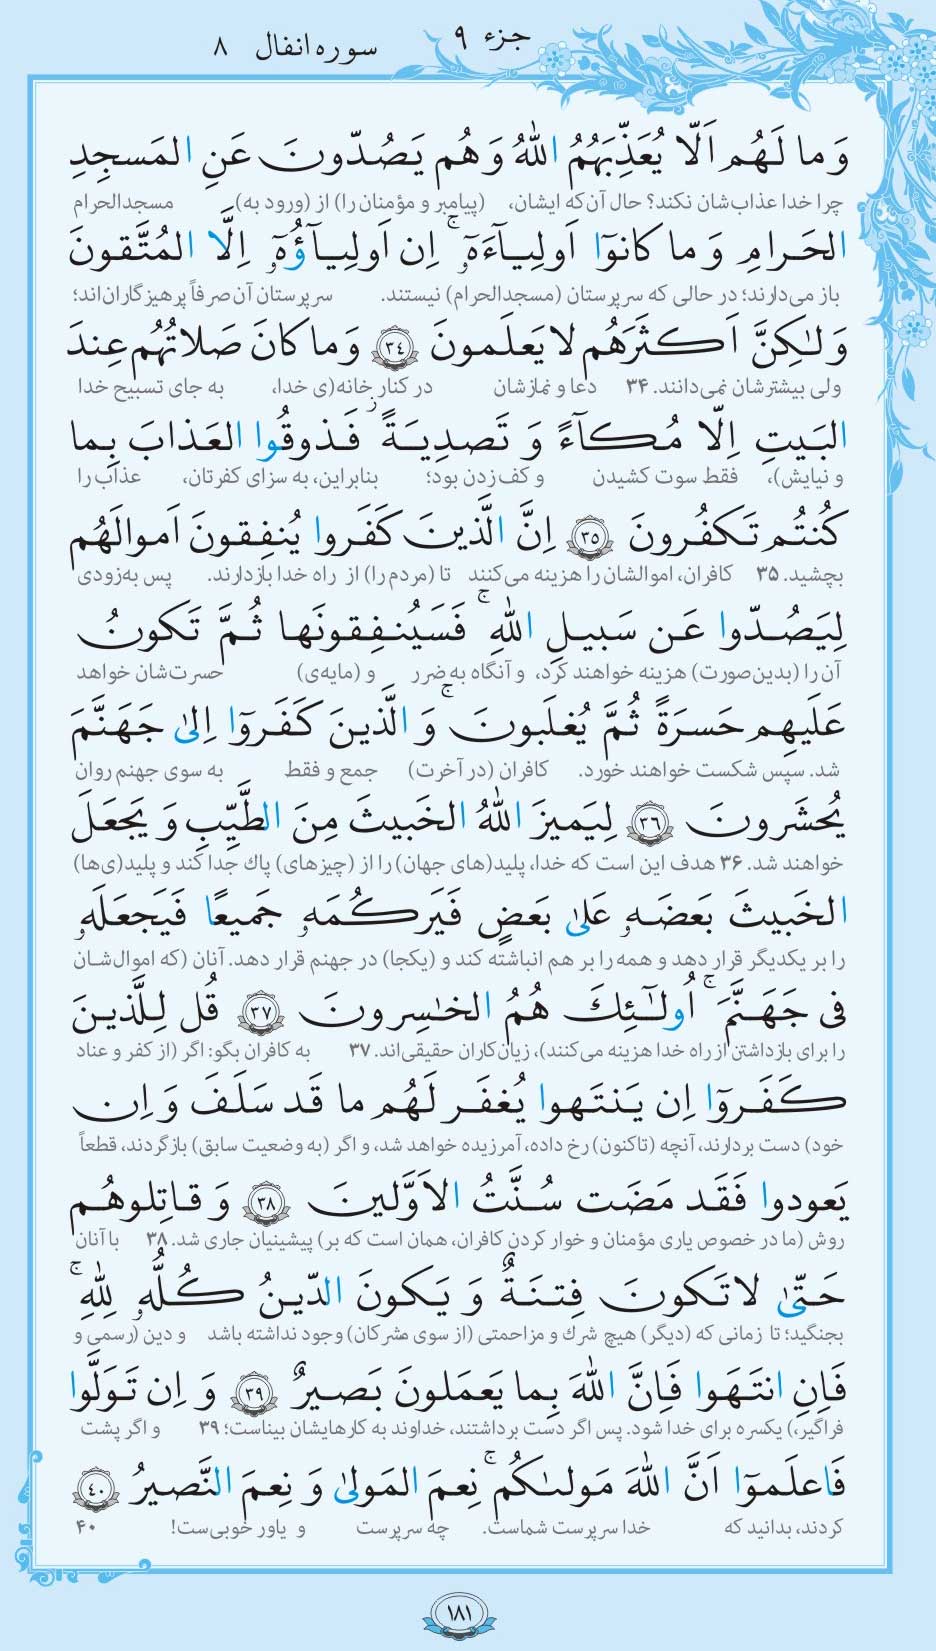 جزء ۹
سوره انفال ۸
وَ ما لَهُم اَلّا يُعَذِّبَهُمُ اللّٰهُ وَ هُم يَصُدّونَ عَنِ المَسجِدِ
چرا خدا عذاب‌شان نکند؟ حال آن‌که ایشان، (پیامبر و مؤمنان را) از (ورود به) مسجدالحرام
الحَرامِ وَ ما كانوٓا اَولِيـآءَهٗٓ ۚ اِن اَولِيـآؤُهٗٓ اِلَّا المُتَّقونَ
باز می‌دارند؛ در حالی که سرپرستان (مسجدالحرام) نیستند. سرپرستان آن صرفاً پرهیزگاران‌اند؛
وَلٰكِنَّ اَكثَرَهُم لا يَعلَمونَ ﴿٣٤﴾ وَ ما كانَ صَلاتُهُم عِندَ
ولی بیشترشان نمی‌دانند. ۳۴ دعا و نمازشان در کنار خانه(ی خدا)، به جای تسبیح خدا
البَيتِ اِلّا مُكـآءً وَ تَصدِيَةً ۚ فَذوقُوا العَذابَ بِما
و نیایش)، فقط سوت کشیدن و کف‌زدن بود؛ بنابراین، به سزای کفرتان، عذاب را
كُنتُم تَكفُرونَ ﴿٣٥﴾ اِنَّ الَّذينَ كَفَروا يُنفِقونَ اَموالَهُم
بچشید. ۳۵ کافران، اموالشان را هزینه می‌کنند تا (مردم را) از راه خدا بازدارند. پس به‌زودی
لِيَصُدّوا عَن سَبيلِ اللّٰهِ ۚ فَسَيُنفِقونَها ثُمَّ تَكونُ
آن را (بدین‌صورت) هزینه خواهند کرد، و آنگاه به ضرر و (مایه‌ی) حسرت‌شان خواهد
عَلَيهِم حَسرَةً ثُمَّ يُغلَبونَ ۚ وَ الَّذينَ كَفَروٓا اِلىٰ جَهَنَّمَ
شد. سپس شکست خواهند خورد. کافران (در آخرت) جمع و فقط به سوی جهنم روان
يُحشَرونَ ﴿٣٦﴾ لِيَميزَ اللّٰهُ الخَبيثَ مِنَ الطَّيِّبِ وَ يَجعَلَ
خواهند شد. ۳۶ هدف این است که خدا، پلید(های جهان) را از (چیزهای) پاك جدا کند و پلید(ی‌ها)
الخَبيثَ بَعضَهٗ عَلىٰ بَعضٍ فَيَركُمَهٗ جَميعًا فَيَجعَلَهٗ
را بر یکدیگر قرار دهد و همه را بر هم انباشته کند و (یکجا) در جهنم قرار دهد. آنان (که اموال‌شان
فى جَهَنَّمَ ۚ اُولٰٓئِكَ هُمُ الخٰسِرونَ ﴿٣٧﴾ قُل لِلَّذينَ
را برای بازداشتن از راه خدا هزینه می‌کنند)، زیان‌کاران حقیقی‌اند. ۳۷ به کافران بگو: اگر (از کفر و عناد
كَفَروٓا اِن يَنتَهوا يُغفَر لَهُم ما قَد سَلَفَ وَ اِن
خود) دست بردارند، آنچه (تاکنون) رخ داده، آمرزیده خواهد شد، و اگر (به وضعیت سابق) بازگردند، قطعاً
يَعودوا فَقَد مَضَت سُنَّتُ الاَوَّلينَ ﴿٣٨﴾ وَ قاتِلوهُم
روش (ما در خصوص یاری مؤمنان و خوار کردن کافران، همان است که بر) پیشینیان جاری شد. ۳۸ با آنان
حَتّىٰ لا تَكونَ فِتنَةٌ وَ يَكونَ الدّينُ كُلُّهٗ لِلّٰهِ ۚ
بجنگید؛ تا زمانی که (دیگر) هیچ شرك و مزاحمتی (از سوی مشرکان) وجود نداشته باشد و دین (رسمی و
فَاِنِ انتَهَوا فَاِنَّ اللّٰهَ بِما يَعمَلونَ بَصيرٌ ﴿٣٩﴾ وَ اِن تَوَلَّوا
فراگیر،) یکسره برای خدا شود. پس اگر دست برداشتند، خداوند به کارهایشان بیناست؛ ۳۹ و اگر پشت
فَاعلَموٓا اَنَّ اللّٰهَ مَولىٰكُم ۚ نِعمَ المَولىٰ وَ نِعمَ النَّصيرُ ﴿٤٠﴾
کردند، بدانید که خدا سرپرست شماست. چه سرپرست و یاور خوبی‌ست! ۴۰
۱۸۱